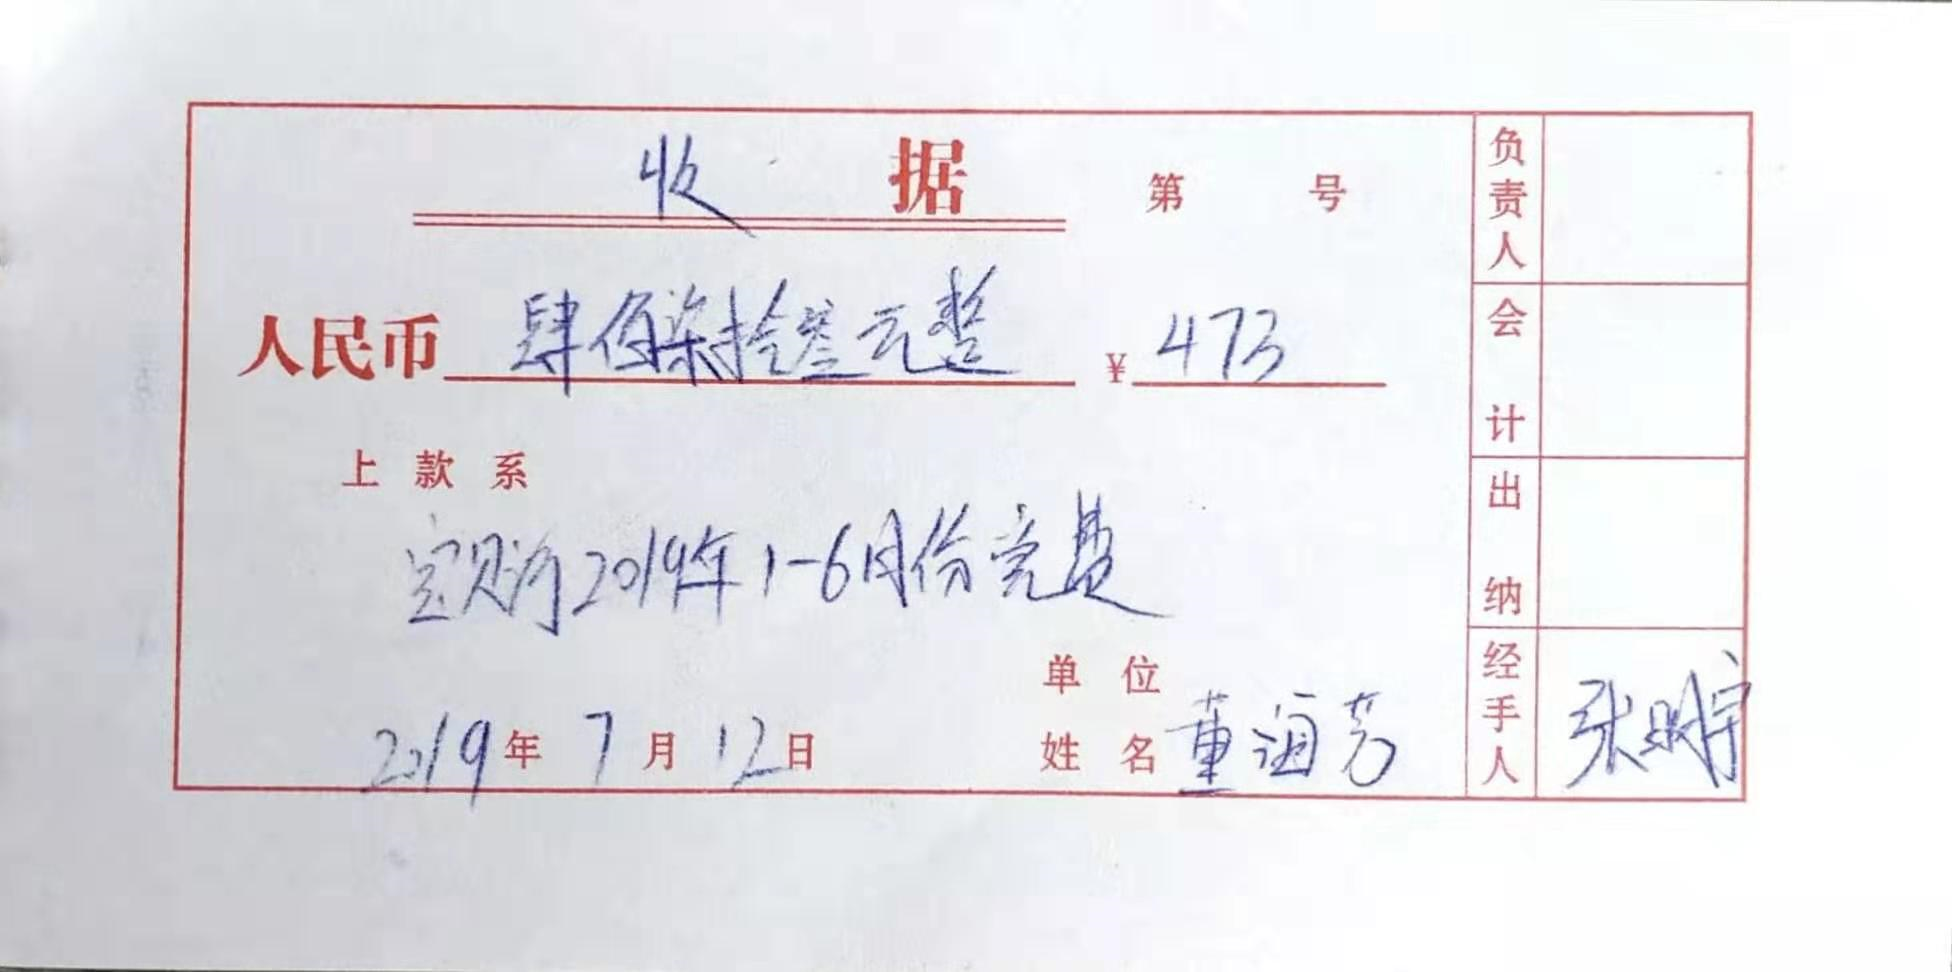 收 据 第 号
人民币 肆佰柒拾叁元整 ¥ 473
上款系
2019年1-6月份党费
单位
2019年 7月 12日 姓名 董海芳
负责人
会计
出纳
经手人 张明宇